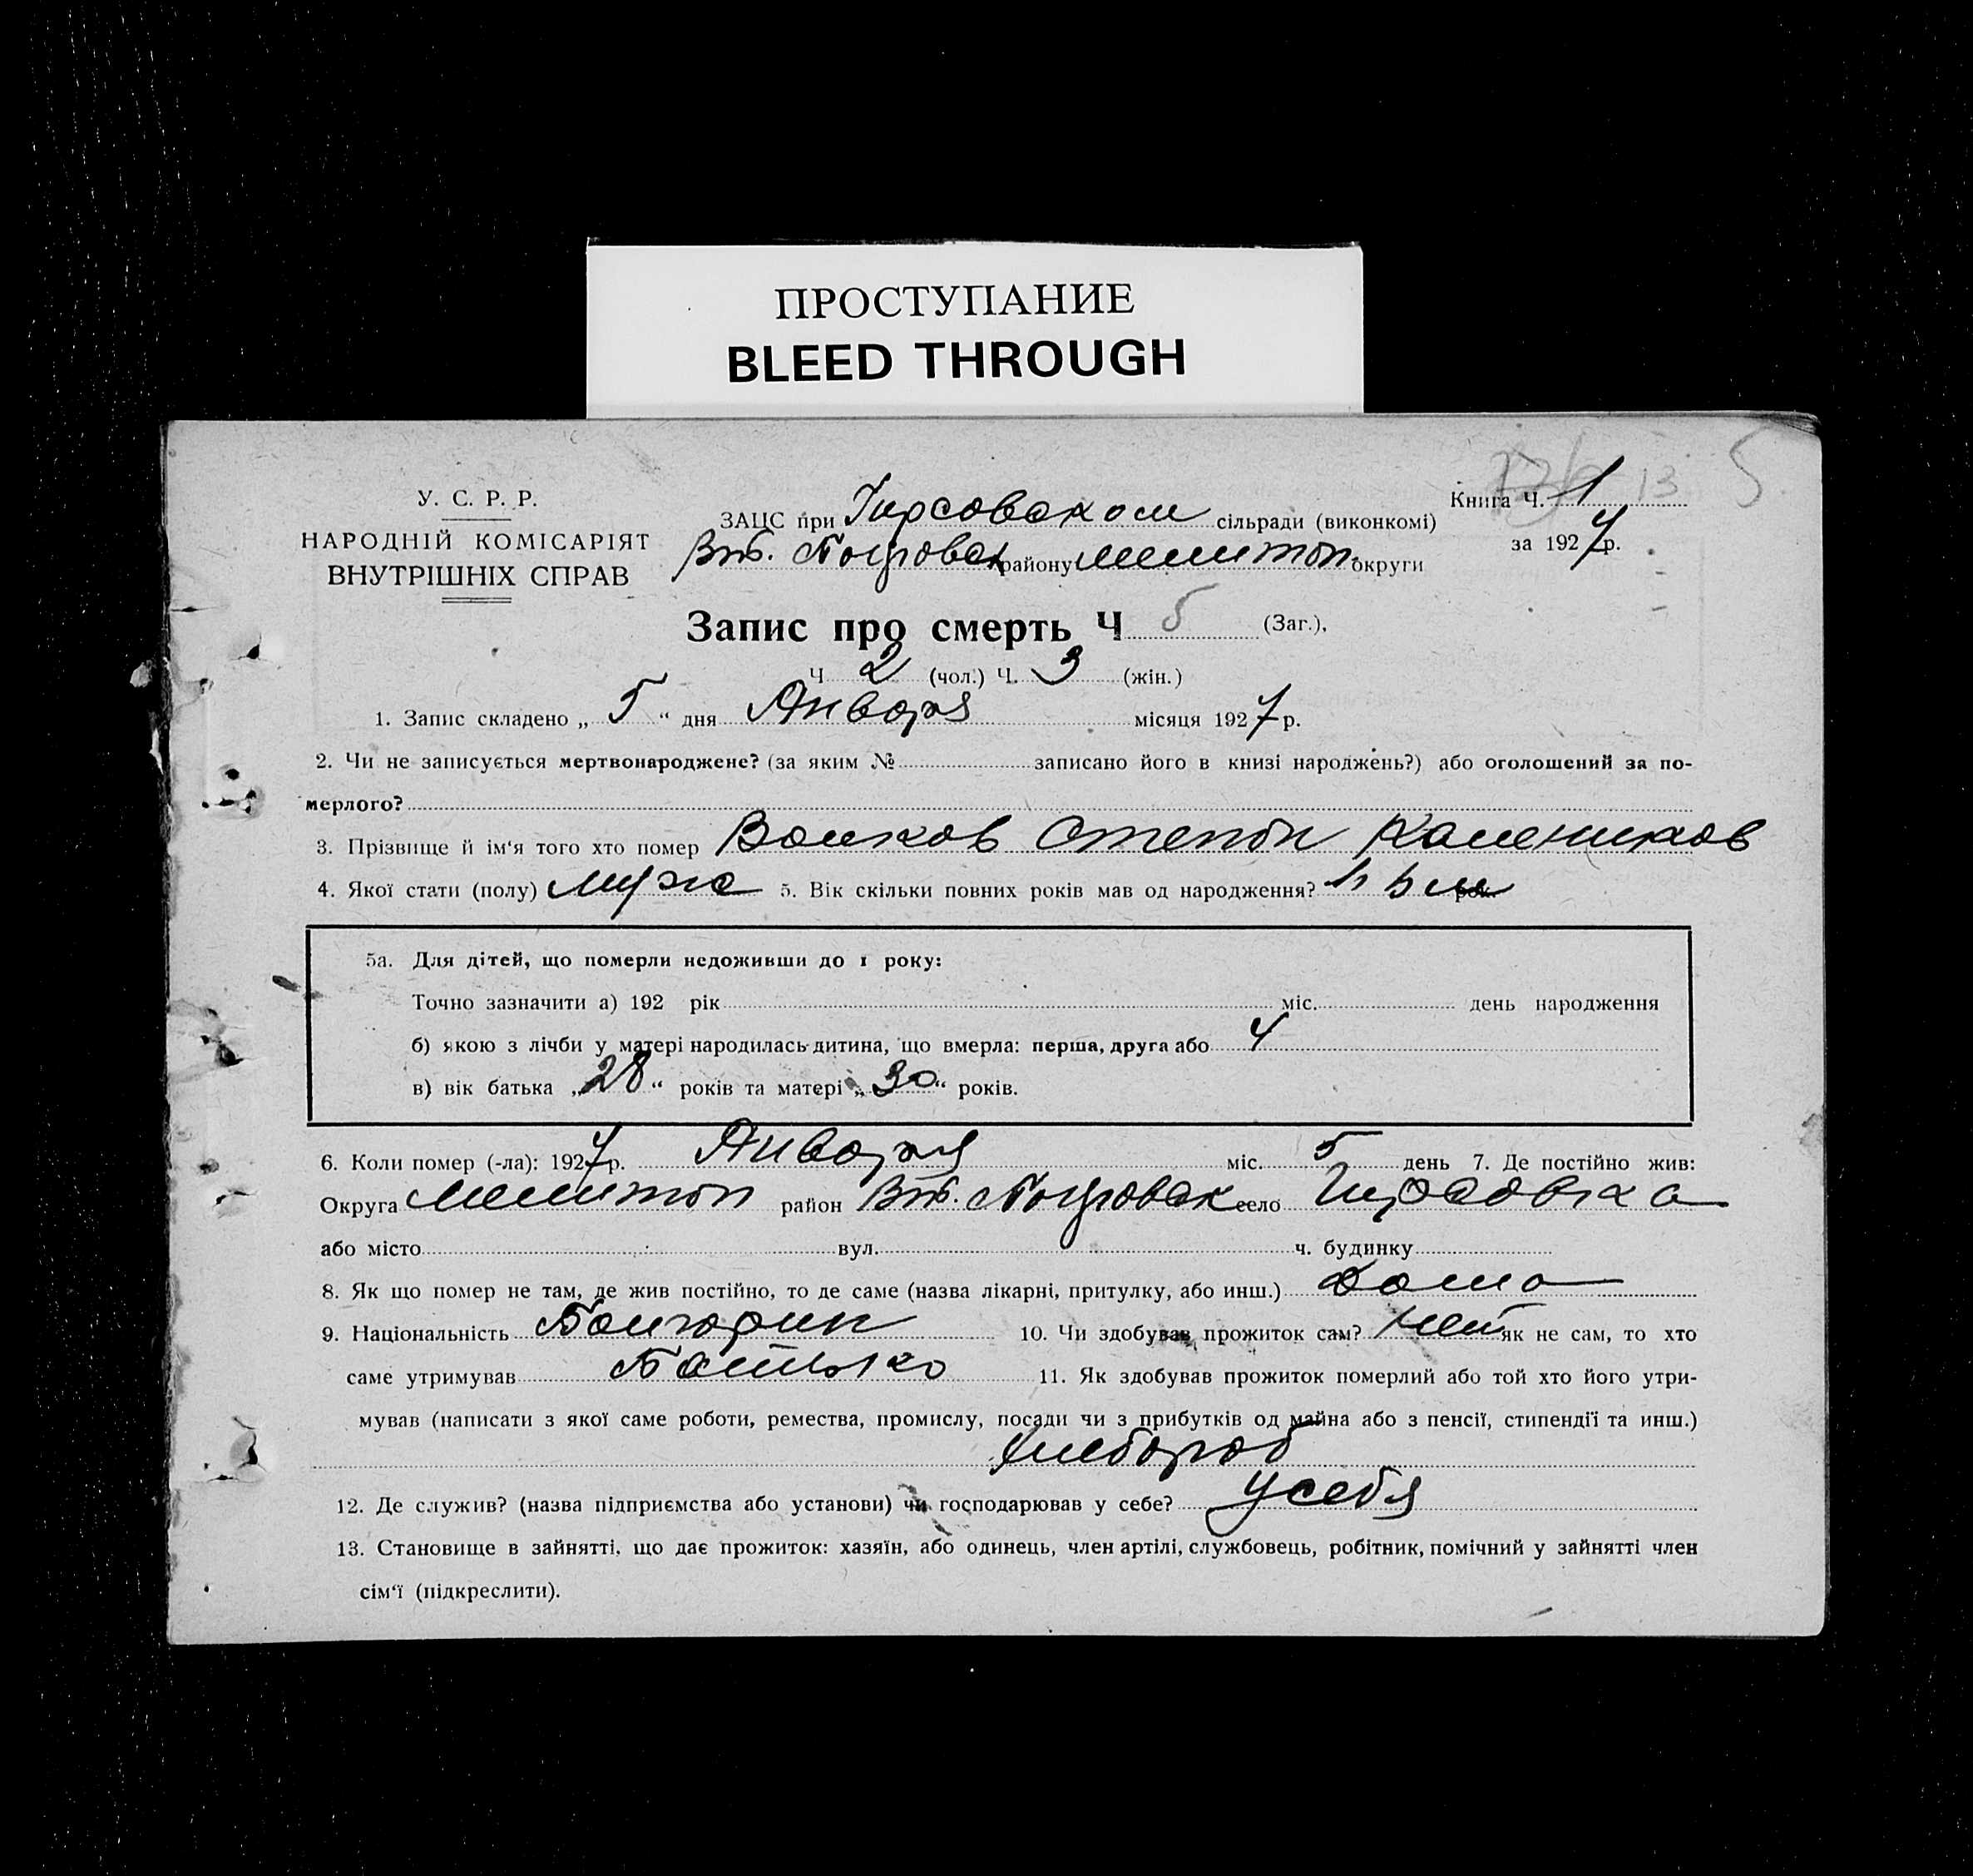 ПРОСТУПАНИЕ
BLEED THROUGH
13 5
У. С. Р. Р.
НАРОДНІЙ КОМІСАРІЯТ
ВНУТРІШНІХ СПРАВ
Книга Ч. 1
ЗАЦС при Гирсовском сільради (виконкомі)
за 1927 р.
Вт. Покровск району Мелитоп. округи
Запис про смерть Ч 5 (Заг.),
Ч 2 (чол.) Ч. 3 (жін.)
1. Запис складено „ 5 “ дня Января місяця 1927 р.
2. Чи не записується мертвонароджене? (за яким № записано його в книзі народжень?) або оголошений за по-
мерлого?
3. Прізвище й ім‘я того хто помер Волков Степан Калеников
4. Якої стати (полу) Мужс 5. Вік скільки повних років мав од народження? рок.
5а. Для дітей, що померли недоживши до 1 року:
Точно зазначити а) 192 рік міс. день народження
б) якою з лічби у матері народилась дитина, що вмерла: перша, друга або 4
в) вік батька „ 28 “ років та матері „ 30 “ років.
6. Коли помер (-ла): 1927 р. Января міс. 5 день 7. Де постійно жив:
Округа Мелитоп район Вт. Покровск село Гирсовка
або місто вул. ч. будинку
8. Як що помер не там, де жив постійно, то де саме (назва лікарні, притулку, або инш.) Дома
9. Національність Болгарин 10. Чи здобував прожиток сам? Нет як не сам, то хто
саме утримував Батько 11. Як здобував прожиток померлий або той хто його утри-
мував (написати з якої саме роботи, ремества, промислу, посади чи з прибутків од майна або з пенсії, стипендії та инш.)
Хлебороб
12. Де служив? (назва підприємства або установи) чи господарював у себе? У себя
13. Становище в зайнятті, що дає прожиток: хазяїн, або одинець, член артілі, службовець, робітник, помічний у зайнятті член
сім‘ї (підкреслити).